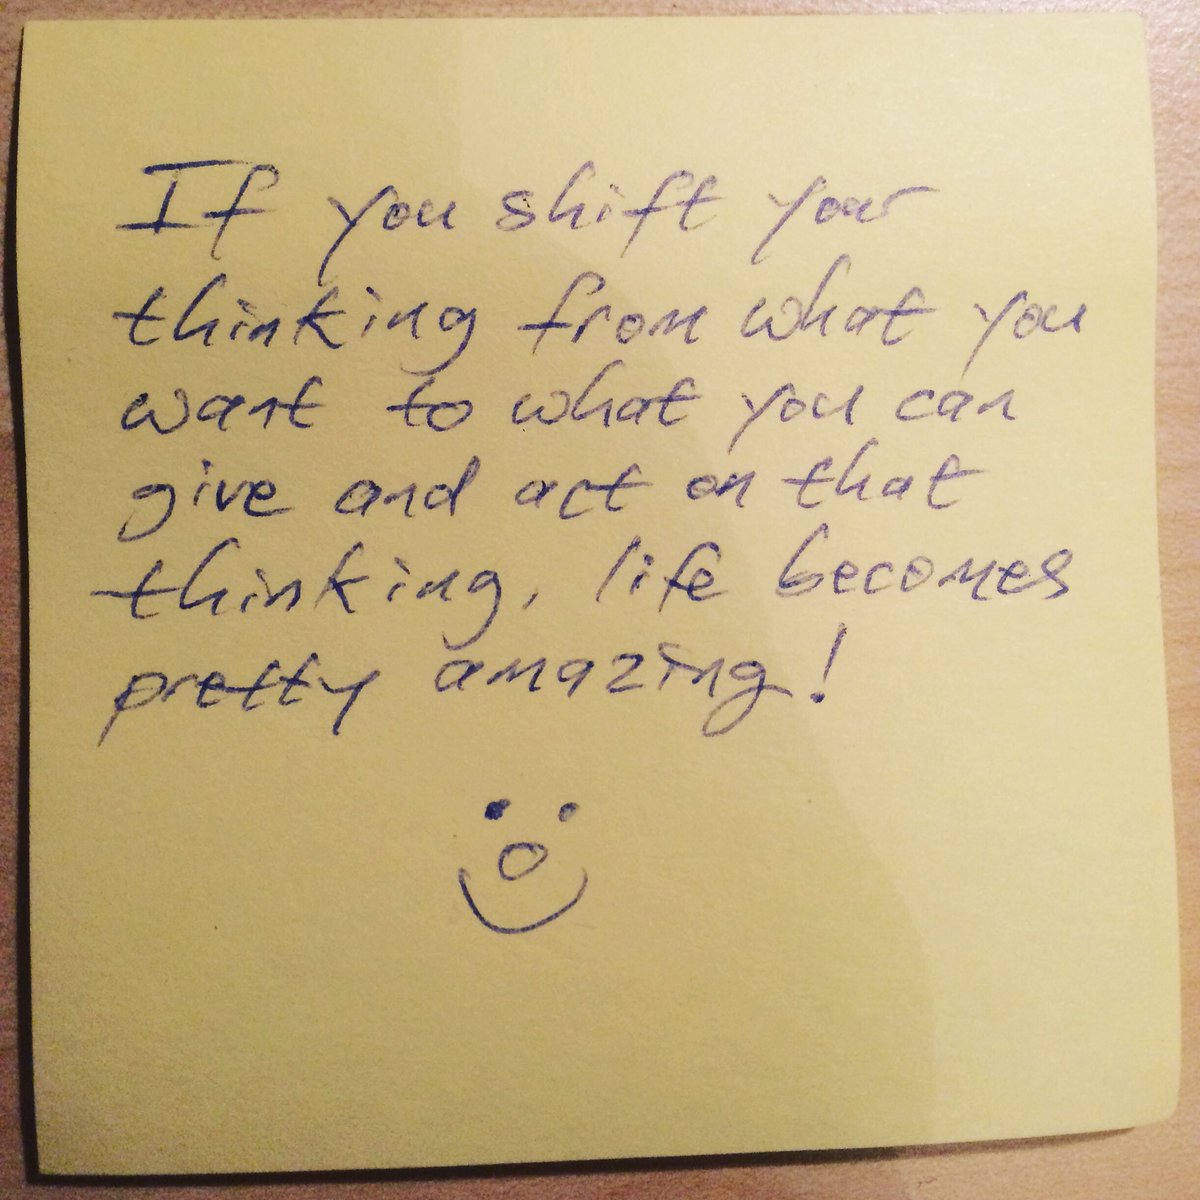 If you shift your
thinking from what you
want to what you can
give and act on that
thinking, life becomes
pretty amazing!